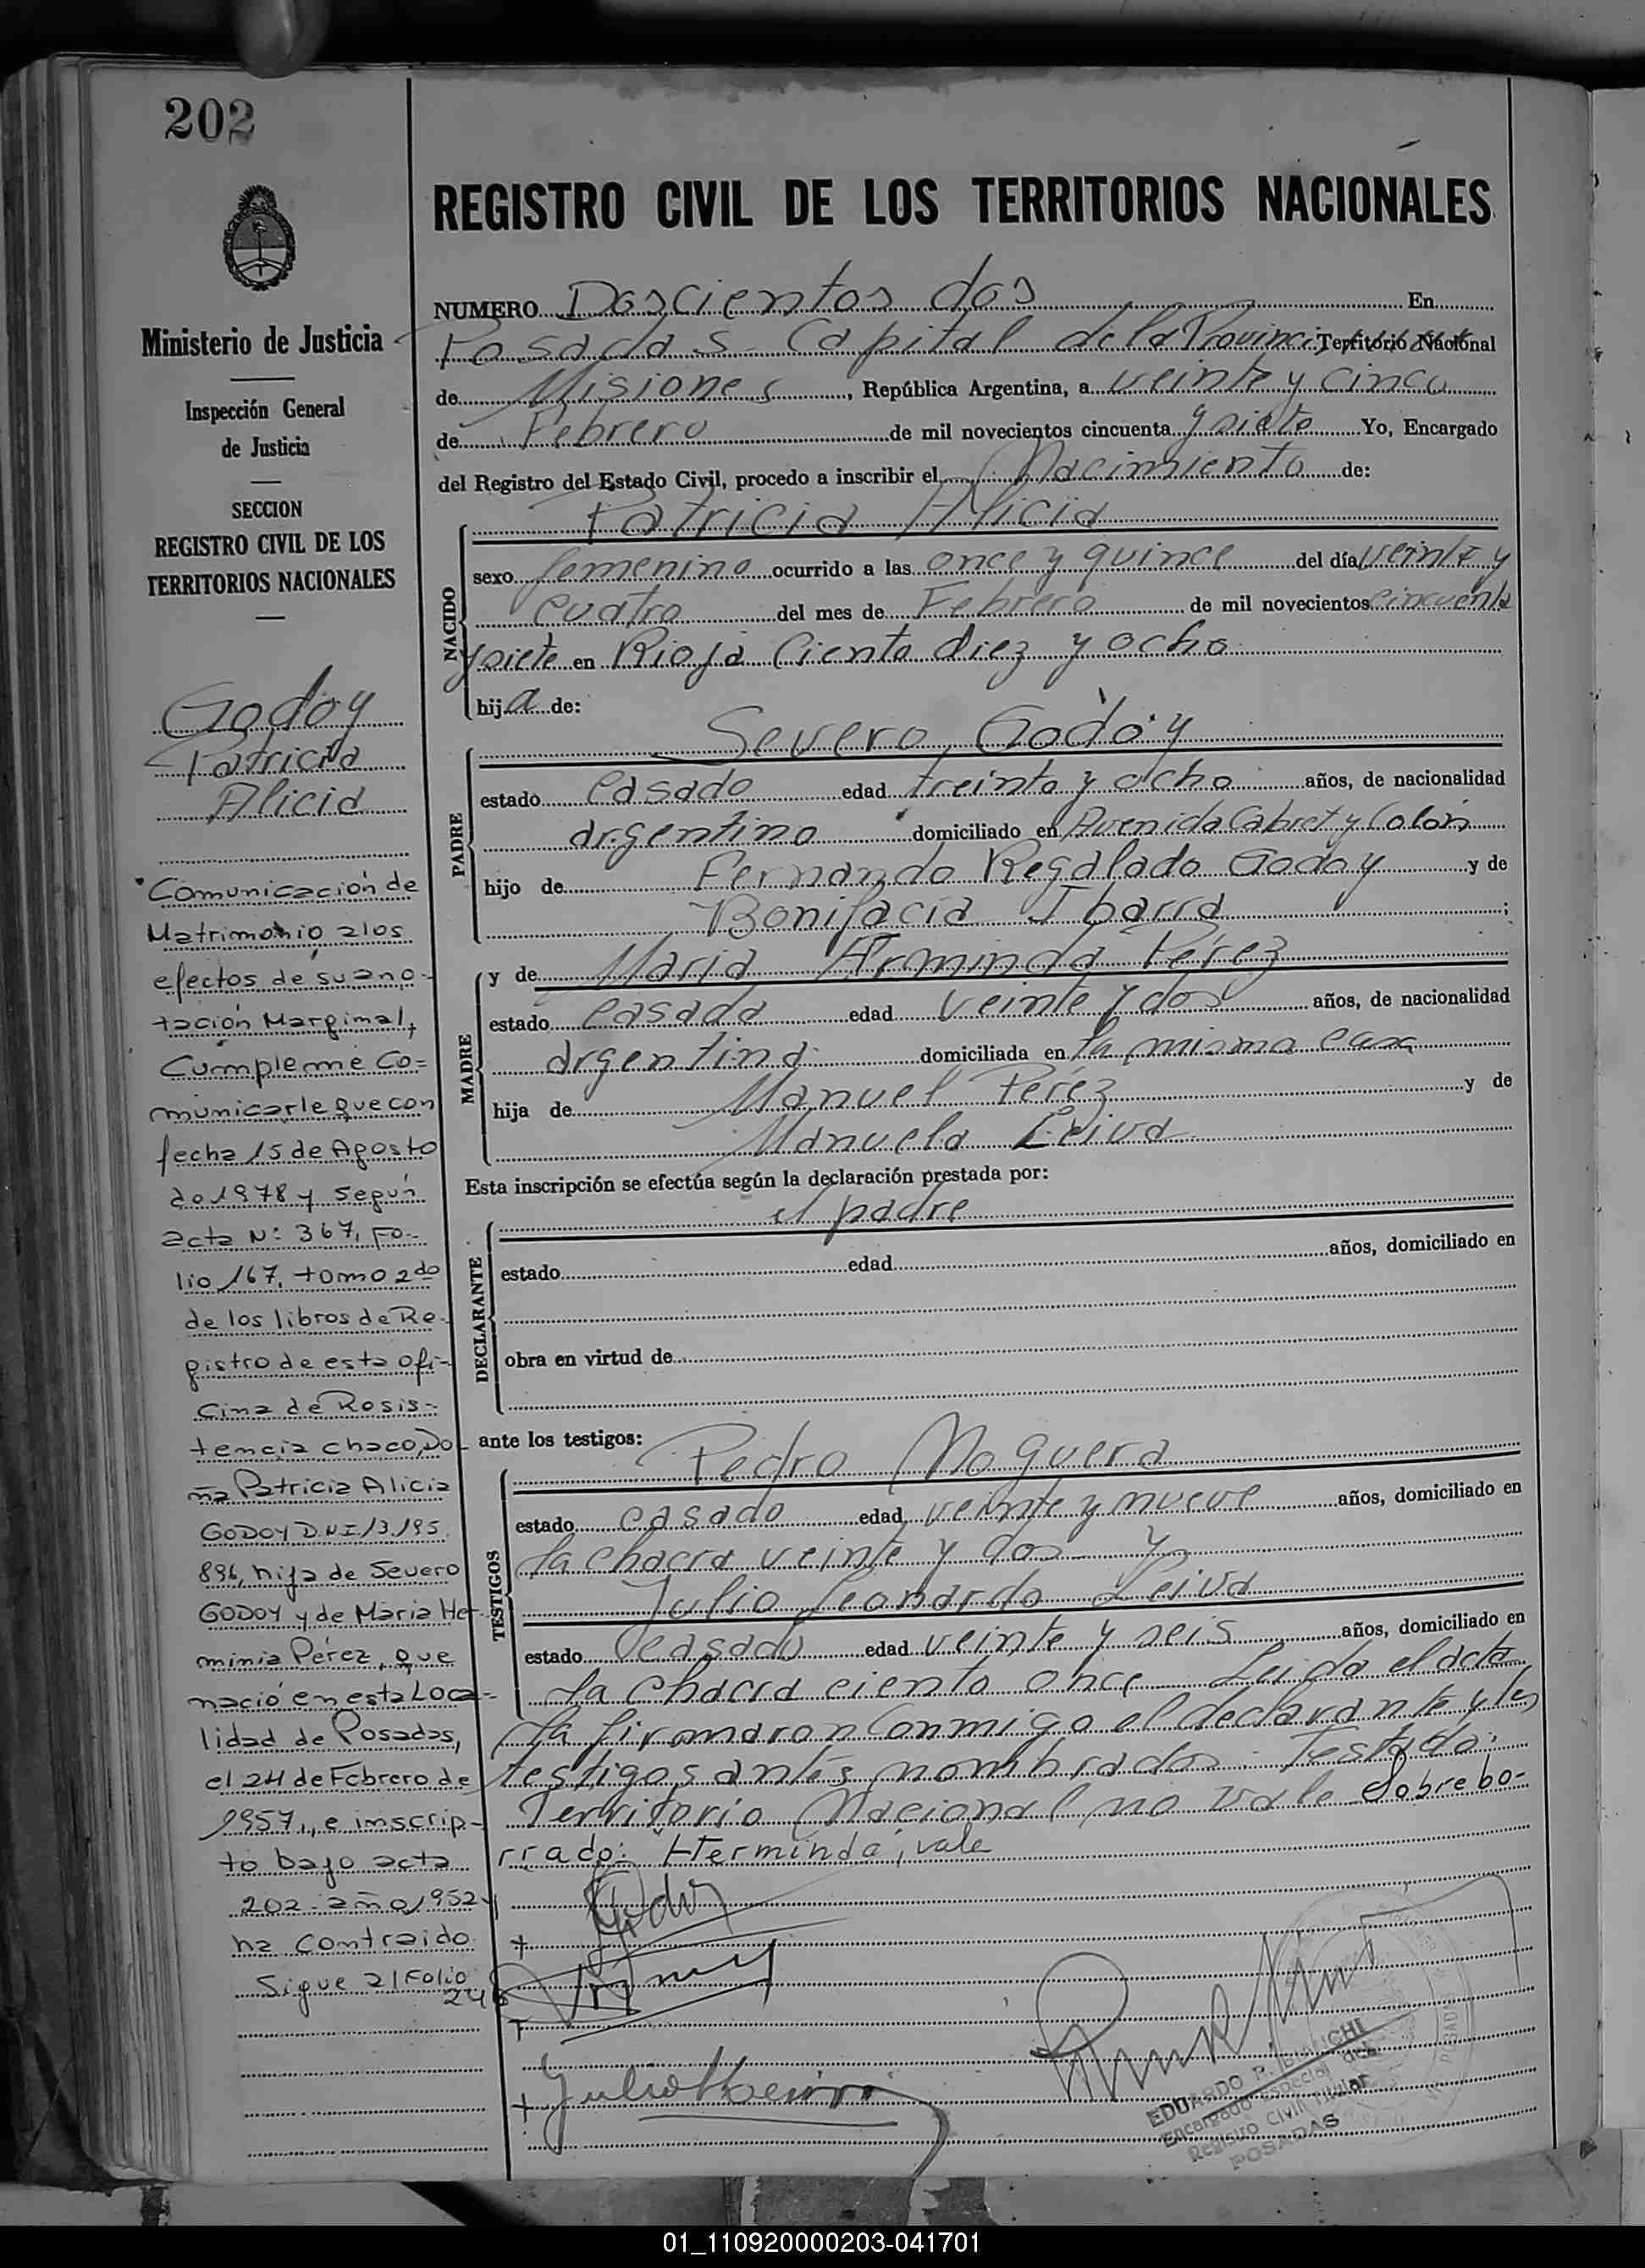 202
Ministerio de Justicia
Inspección General
de Justicia
SECCION
REGISTRO CIVIL DE LOS
TERRITORIOS NACIONALES
Godoy
Patricia
Alicia
Comunicación de
Matrimonio a los
efectos de su ano-
tación Marginal,
Cumpleme Co=
municarle que con
fecha 15 de Agosto
de 1978 y Según
acta N: 367, Fo-
lio 167, tomo 2do
de los libros de Re-
gistro de esta ofi-
cina de Resis-
tencia Chaco, Do
ña Patricia Alicia
GODOY D.N.I 13.195.
896, hija de Severo
GODOY y de Maria Her-
minia Pérez, que
nació en esta Loca-
lidad de Posadas,
el 24 de Febrero de
1957, e inscrip-
to bajo acta
202 - año 1952
ha contraido
Sigue 2/Folio
REGISTRO CIVIL DE LOS TERRITORIOS NACIONALES
NUMERO Doscientos dos En
Posadas Capital de la Provincia Territorio Nacional
de Misiones, República Argentina, a veinte y cinco
de Febrero de mil novecientos cincuenta y siete Yo, Encargado
del Registro del Estado Civil, procedo a inscribir el Nacimiento de:
Patricia Alicia
NACIDO
sexo femenino ocurrido a las once y quince del día veinte y
cuatro del mes de Febrero de mil novecientos cincuenta
y siete en Rioja Ciento diez y ocho
hija de:
Severo Godoy
PADRE
estado casado edad treinta y ocho años, de nacionalidad
argentino domiciliado en Avenida Cabret y Colón
hijo de Fernando Regalado Godoy y de
Bonifacia Ibarra;
y de Maria Herminda Pérez
MADRE
estado casada edad veinte y dos años, de nacionalidad
argentina domiciliada en la misma casa
hija de Manuel Pérez y de
Manuela Leiva
Esta inscripción se efectúa según la declaración prestada por:
el padre
DECLARANTE
estado edad años, domiciliado en
obra en virtud de
ante los testigos:
Pedro Noguera
TESTIGOS
estado casado edad veinte y nueve años, domiciliado en
la chacra veinte y dos y
Julio Leonardo Leiva
estado casado edad veinte y seis años, domiciliado en
la chacra ciento once Leida el acta
la firmaron Conmigo el declarante y los
testigos antes nombrados. Testado:
Territorio Nacional, no vale Sobrebo-
rrado: Herminda, vale
EDUARDO R. BIANCHI
Encargado Especial
Registro Civil Titular
POSADAS
01_110920000203-041701